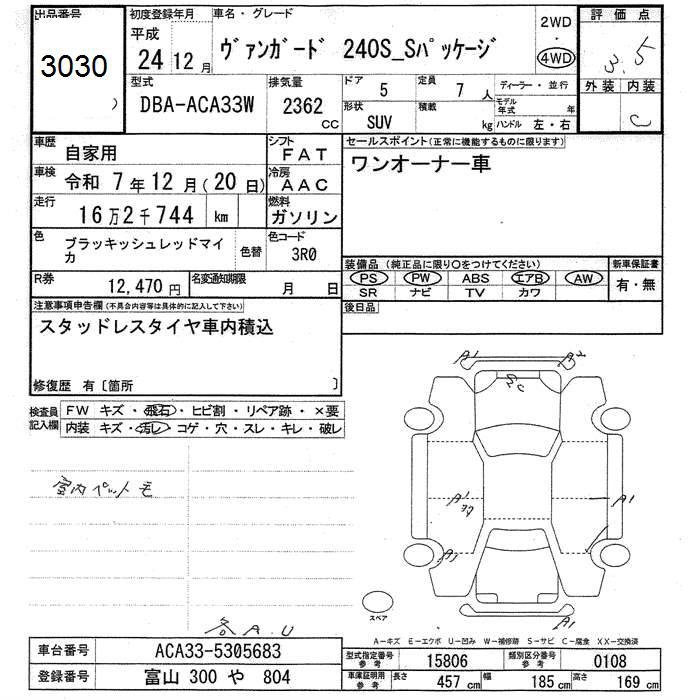 出品番号 3030
初度登録年月 平成 24 12 月
車名・グレード ヴァンガード 240S_Sパッケージ
2WD
4WD
評価点 3.5
外装 内装 C
型式 DBA-ACA33W
排気量 2362 CC
ドア 5
定員 7 人
形状 SUV
積載 kg
ディーラー・並行
モデル年式 年
ハンドル 左・右
車歴 自家用
シフト FAT
車検 令和 7 年 12 月 (20 日)
冷房 AAC
走行 16 万 2 千 744 km
燃料 ガソリン
色 ブラッキッシュレッドマイカ 色替
色コード 3R0
R券 12,470 円
名変通知期限 月 日
セールスポイント(正常に機能するものに限ります)
ワンオーナー車
装備品 (純正品に限り○をつけてください)
PS PW ABS エアB AW
SR ナビ TV カワ
新車保証書
有・無
後日品
注意事項申告欄(不具合内容等は具体的に記入して下さい)
スタッドレスタイヤ車内積込
修復歴 有〔箇所 〕
検査員記入欄
FW キズ・飛石・ヒビ割・リペア跡・×要
内装 キズ・汚レ・コゲ・穴・スレ・キレ・破レ
室内ペット毛
各A.U
A1
A1
A1
A1
スペア
A−キズ E−エクボ U−凹み W−補修跡 S−サビ C−腐食 XX−交換済
車台番号 ACA33-5305683
登録番号 富山 300 や 804
型式指定番号 参考 15806
類別区分番号 参考 0108
車庫証明用 参考 長さ 457 cm 幅 185 cm 高さ 169 cm